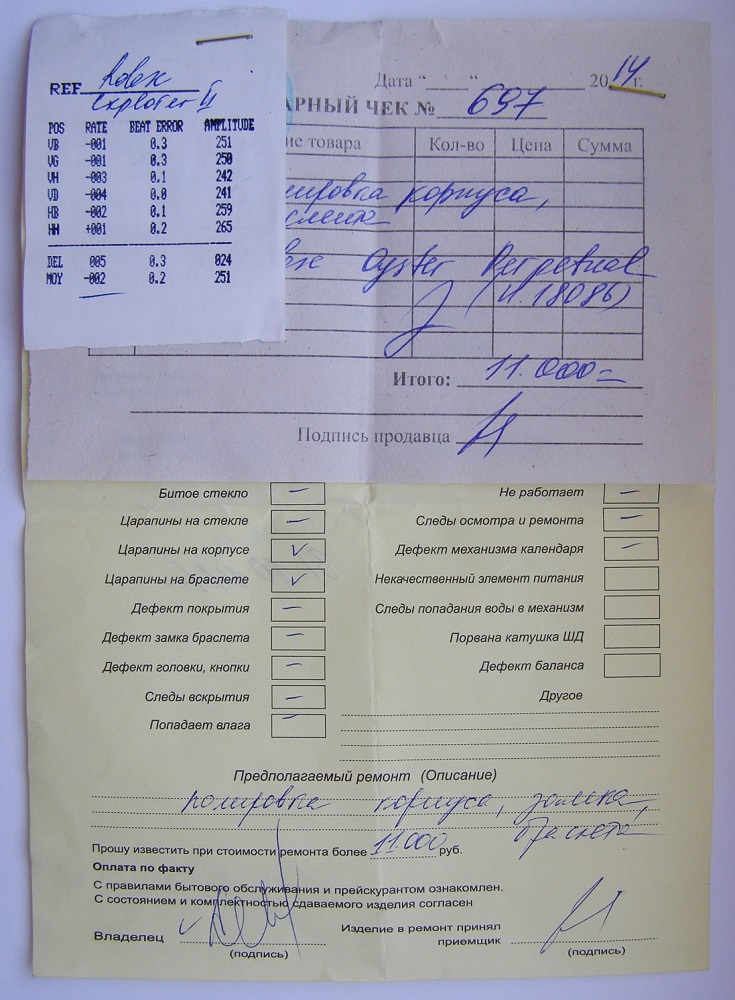 REF Rolex
Explorer II
POS RATE BEAT ERROR AMPLITUDE
VB -001 0.3 251
VG -001 0.3 250
VH -003 0.1 242
VD -004 0.0 241
HB -002 0.1 259
HH +001 0.2 265
DEL 005 0.3 024
MOY -002 0.2 251
Дата “ “ 2014 г.
АРНЫЙ ЧЕК № 697
ие товара Кол-во Цена Сумма
ировка корпуса,
слета
lex Oyster Perpetual
(И.18086)
Итого: 11.000=
Подпись продавца
Битое стекло — Не работает —
Царапины на стекле — Следы осмотра и ремонта —
Царапины на корпусе ✓ Дефект механизма календаря —
Царапины на браслете ✓ Некачественный элемент питания
Дефект покрытия — Следы попадания воды в механизм
Дефект замка браслета — Порвана катушка ШД
Дефект головки, кнопки — Дефект баланса
Следы вскрытия — Другое
Попадает влага —
Предполагаемый ремонт (Описание)
полировка корпуса, замка,
браслета
Прошу известить при стоимости ремонта более 11.000 руб.
Оплата по факту
С правилами бытового обслуживания и прейскурантом ознакомлен.
С состоянием и комплектностью сдаваемого изделия согласен
Владелец Изделие в ремонт принял
приемщик
(подпись) (подпись)